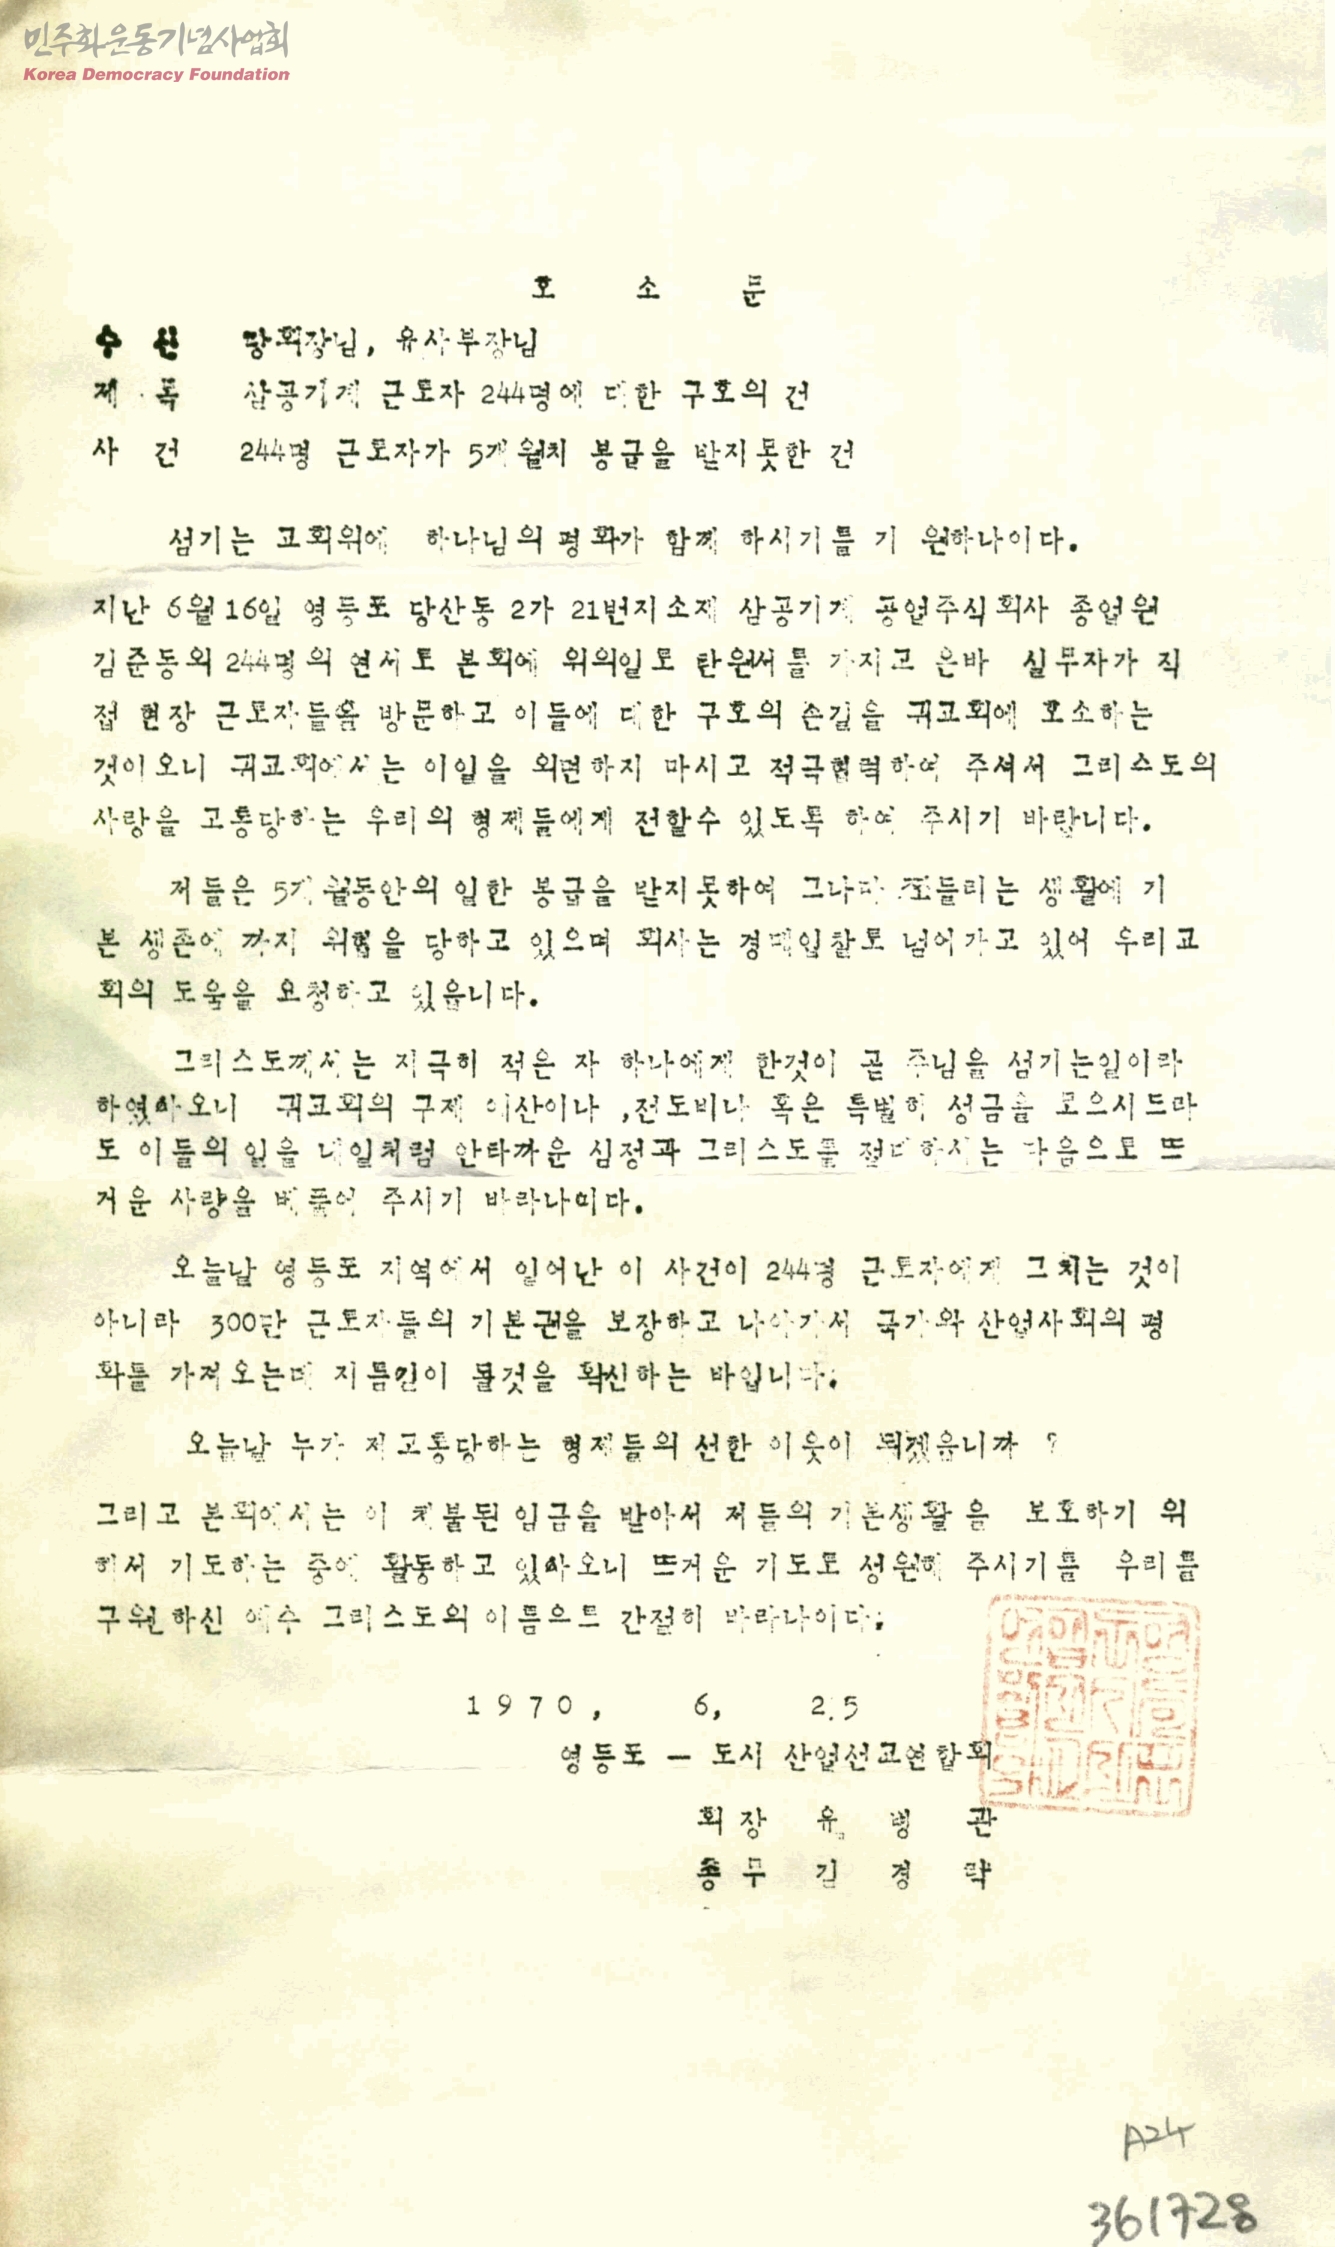 민주화운동기념사업회
Korea Democracy Foundation
호 소 문
수 신 당회장님, 유사부장님
제 목 삼공기계 근로자 244명에 대한 구호의 건
사 건 244명 근로자가 5개월치 봉급을 받지못한 건
섬기는 교회위에 하나님의 평화가 함께 하시기를 기 원하나이다.
지난 6월 16일 영등포 당산동 2가 21번지소재 삼공기계 공업주식회사 종업원
김준동외 244명의 연서로 본회에 위의일로 탄원서를 가지고 온바 실무자가 직
접 현장 근로자들을 방문하고 이들에 대한 구호의 손길을 귀교회에 호소하는
것이오니 귀교회에서는 이일을 외면하지 마시고 적극협력하여 주셔서 그리스도의
사랑을 고통당하는 우리의 형제들에게 전할수 있도록 하여 주시기 바랍니다.
저들은 5개월동안의 일한 봉급을 받지못하여 그나마 쪼들리는 생활에 기
본 생존에 까지 위협을 당하고 있으며 회사는 경매입찰로 넘어가고 있어 우리교
회의 도움을 요청하고 있읍니다.
그리스도께서는 지극히 적은 자 하나에게 한것이 곧 주님을 섬기는일이라
하였아오니 귀교회의 구제 예산이나 ,전도비나 혹은 특별히 성금을 모으시드라
도 이들의 일을 내일처럼 안타까운 심정과 그리스도를 접대하시는 마음으로 뜨
거운 사랑을 베풀어 주시기 바라나이다.
오늘날 영등포 지역에서 일어난 이 사건이 244명 근로자에게 그치는 것이
아니라 300만 근로자들의 기본권을 보장하고 나아가서 국가와 산업사회의 평
화를 가져오는데 지름길이 될것을 확신하는 바입니다.
오늘날 누가 저고통당하는 형제들의 선한 이웃이 되겠읍니까 ?
그리고 본회에서는 이 체불된 임금을 받아서 저들의 기본생활을 보호하기 위
해서 기도하는 중에 활동하고 있아오니 뜨거운 기도로 성원해 주시기를 우리를
구원하신 예수 그리스도의 이름으로 간절히 바라나이다.
1970, 6, 25
영등포 — 도시 산업선교연합회
회장 유 병 관
총무 김 경 락
A24
361728